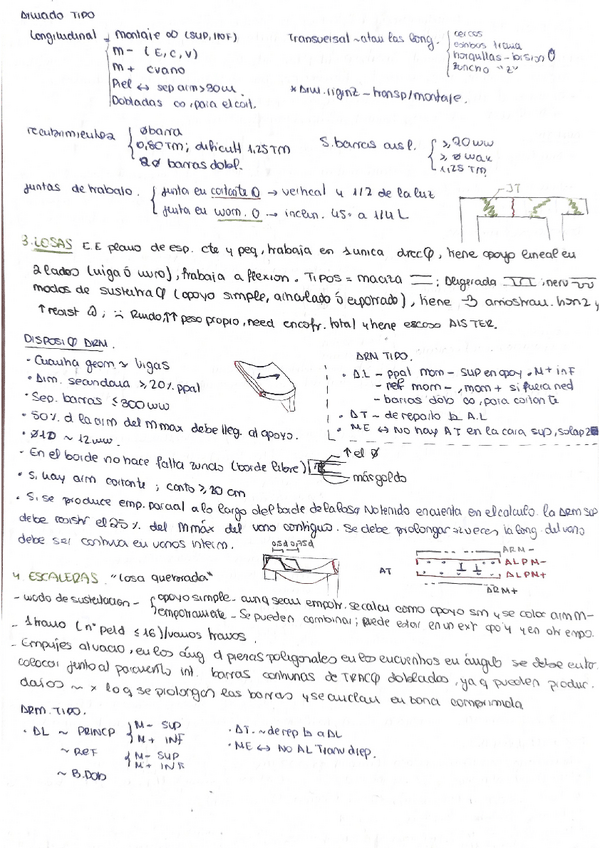 Armado TIPO
Longitudinal - montaje ∞ (SUP, INF)
m - (E, C, V)
m + c vano
Piel ↔ sep arm > 30 cm.
Dobladas ∞, para el cort.
Transversal ~ atan las long.
cercos
estribos trama
horquillas - torsión
zuncho "z"
* Arm. rigiz - transp/montaje.
recubrimientos
Ø barra
0,80 TM; dificult 1,25 TM
2Ø barras dobl.
S. barras aisl.
≥ 20 mm
≥ Ø max
1,25 TM
juntas de trabajo.
junta en cortante 0 → vertical y 1/2 de la luz
junta en mom. 0 → inclin. 45º a 1/4 L
JT
3. LOSAS E.E plano de esp. cte y peq, trabaja en 1 unica direcc, tiene apoyo lineal en
2 lados (viga ó muro), trabaja a flexion. Tipos = maciza ; aligerada ; nerv
modos de sustent (apoyo simple, empotrado ó), tiene arriostram. horiz y
↑ resist ; Ruido, ↑↑ peso propio, need encofr. total y tiene escaso AISTER.
DISPOSI ARM.
- Cuantía geom > vigas
- Arm. secundaria ≥ 20% ppal
- Sep. barras ≤ 300 mm
- 50% d la arm del M max debe lleg. al apoyo.
- ~ 12 mm.
- En el borde no hace falta zuncho (borde libre)
↑ el Ø
más gordo
- Si hay arm cortante; canto ≥ 20 cm
- Si se produce emp. parcial a lo largo del borde de la losa No tenido en cuenta en el calculo. la Arm sup
debe resistir el 25% del M máx del vano contiguo. Se debe prolongar veces la long. del vano
debe ser continua en vanos interm.
ARM TIPO.
- AL - ppal mom - sup en apoy. M+ inf
- ref mom -, mom + si fuera nec
- barras dob ∞, para cortante
- AT - de reparto ⊥ A.L
- ME ↔ No hay AT en la cara sup, solap
0,5d 0,75d
AT
ARM -
ALPM -
ALPM +
ARM +
4 ESCALERAS. "Losa quebrada"
- modo de sustentacion -
apoyo simple - aunq sean empotr. se calcu como apoyo sm y se coloc arm M-
empotramiento - Se pueden combinar; puede estar en un ext apoy y en otr empo.
- 1 tramo (nº peld ≤ 16) / varios tramos.
- Empujes al vacio, en los áng. d piezas poligonales en los encuentros en ángulo se debe evitar
colocar junto al paramento int. barras continuas de TRACC dobladas, ya q pueden produc.
daños ~ x lo q se prolongan las barras y se anclan en zona comprimida
ARM. TIPO.
- AL ~ PRINCP
M - SUP
M + INF
~ REF
M - SUP
M + INF
~ B. Dob
- AT. ~ de rep ⊥ a AL
- ME ↔ NO AL